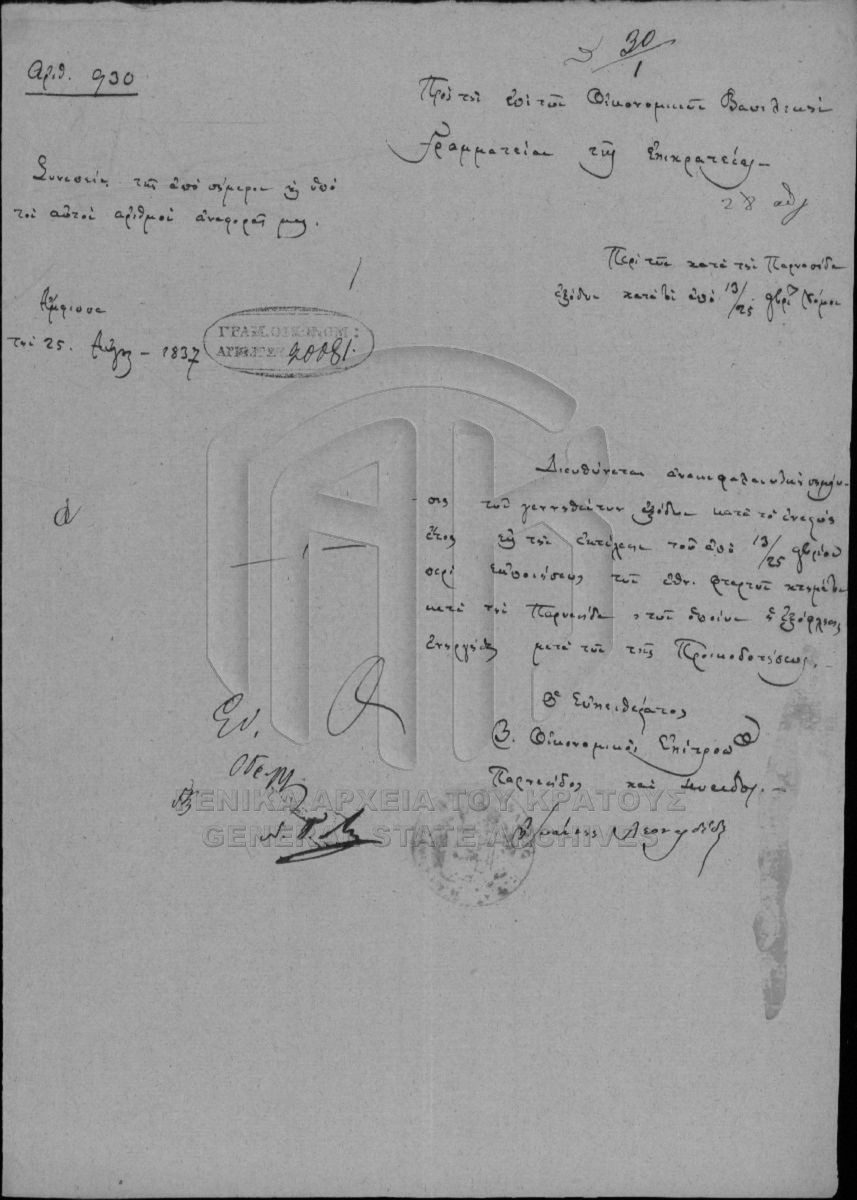 30/1
Αριθ. 930
Πρὸς τὴν ἐπὶ τῶν Οἰκονομικῶν Βασιλικὴν
Γραμματείαν τῆς Ἐπικρατείας.
28 αὐγ
Συνεπείᾳ τῆς ἀπὸ σήμερον καὶ ὑπὸ
τὸν αὐτὸν ἀριθμὸν ἀναφορᾶς μας.
Περὶ τῶν κατὰ τὴν Παρνασίδα
ἐξόδων κατὰ τὸν ἀπὸ 13/25 9βρίου Νόμον
Ἄμφισσα
τὴν 25. Αὐγ. 1837
ΓΡΑΜ. ΟΙΚΟΝΟΜ:
20081.
Διευθύνεται ἀνακεφαλαιωτικὴ σημείω-
σις τῶν γεννηθέντων ἐξόδων κατὰ τὸ ἐνεστὼς
ἔτος εἰς τὴν ἐκτέλεσιν τοῦ ἀπὸ 13/25 9βρίου
περὶ ἐκποιήσεως τῶν ἐθν. φθαρτῶν κτημάτων
κατὰ τὴν Παρνασίδα, τῶν ὁποίων ἡ ἐξόφλησις
ἐνεργεῖται μετὰ τῶν τῆς Προικοδοτήσεως.
Ὁ Εὐπειθέστατος
Β. Οἰκονομικὸς Ἐπίτροπος
Παρνασίδος καὶ
ΓΕΝΙΚΑ ΑΡΧΕΙΑ ΤΟΥ ΚΡΑΤΟΥΣ
GENERAL STATE ARCHIVES